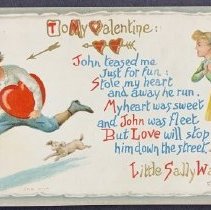 To My Valentine:
John teased me
Just for fun:
Stole my heart
and away he run.
My heart was sweet
and John was fleet
But Love will stop
him down the street.
Little Sally